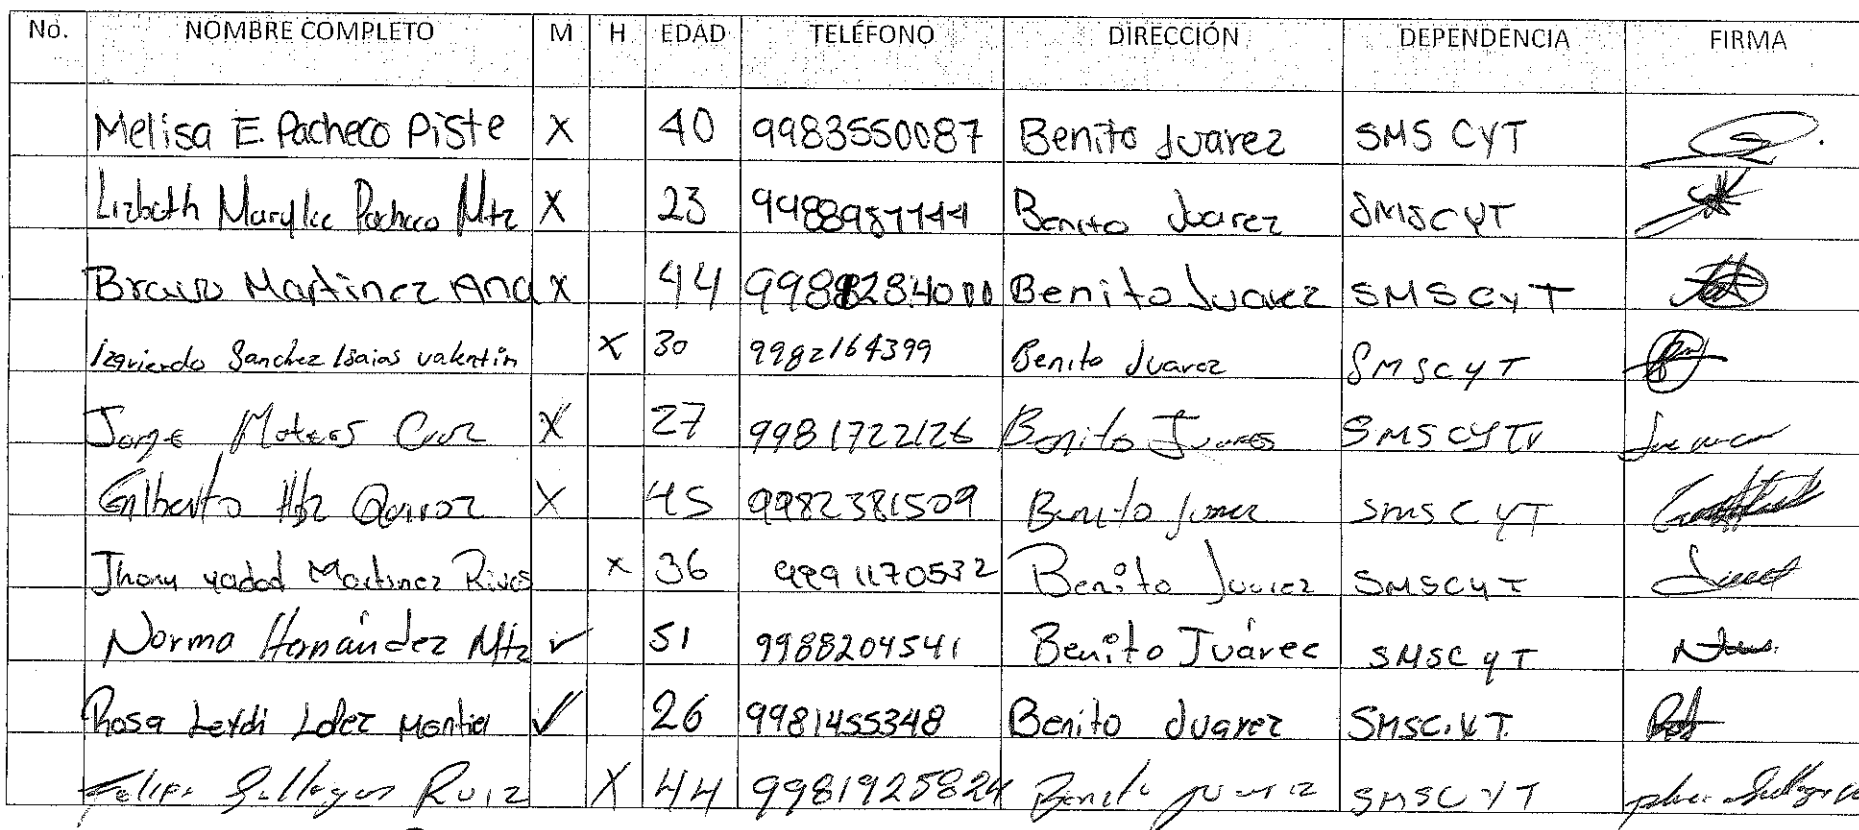 No. NOMBRE COMPLETO M H EDAD TELÉFONO DIRECCIÓN DEPENDENCIA FIRMA
Melisa E. Pacheco Piste X 40 9983550087 Benito Juarez SMS CYT
Lizbeth Marylie Pacheco Mtz X 23 Benito Juarez SMSCYT
Bravo Martinez Ana X 44 Benito Juarez SMSCyT
Izquierdo Sanchez Isaias valentin X 30 9982164399 Benito Juarez SMSCYT
Jorge Mateos Cruz X 27 9981722126 Benito Juares
Gilberto Hdz X 45 9982381509 Benito SMSCYT
Jhony yadod Martinez Rivas X 36 Benito Juarez SMSCYT
Norma Hernández Mtz ✓ 51 9988204541 Benito Juárez SMSCYT
Rosa Leydi Lopez Montiel ✓ 26 9981455348 Benito Juarez SMSC.YT.
Felipe Gallegos Ruiz X 44 9981925824 Benito SMSCYT